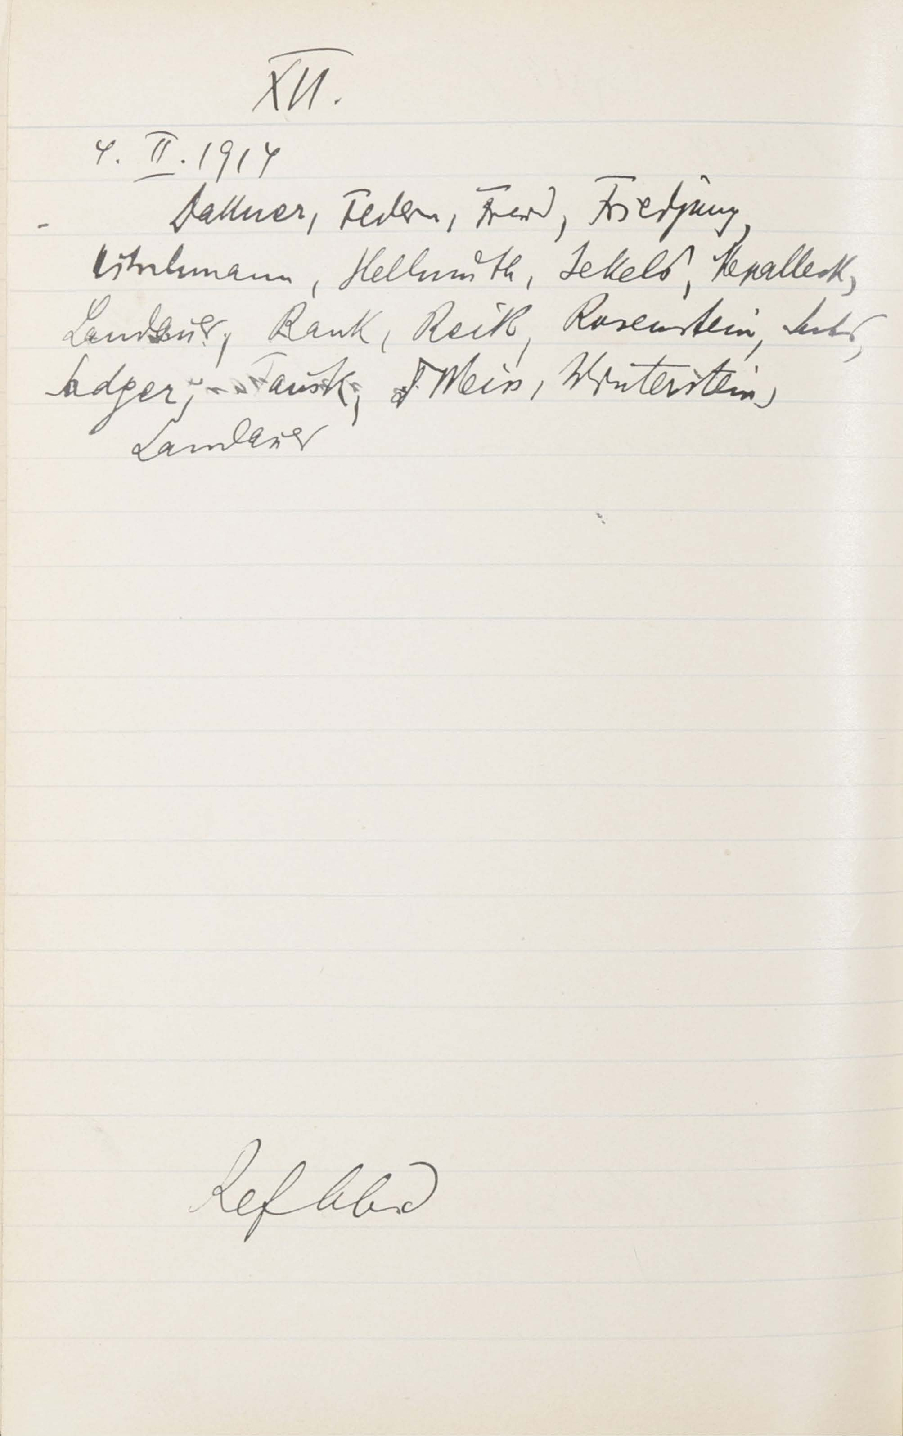 XII.
4. II. 1914
Dattner, Federn, Freud, Friedjung,
Hitschmann, Hellmuth, Jekels, Kepalleck,
Landauer, Rank, Reik, Rosenstein, Sachs,
Sadger, Tausk, Weiss, Winterstein,
Landauer
Ref Abd